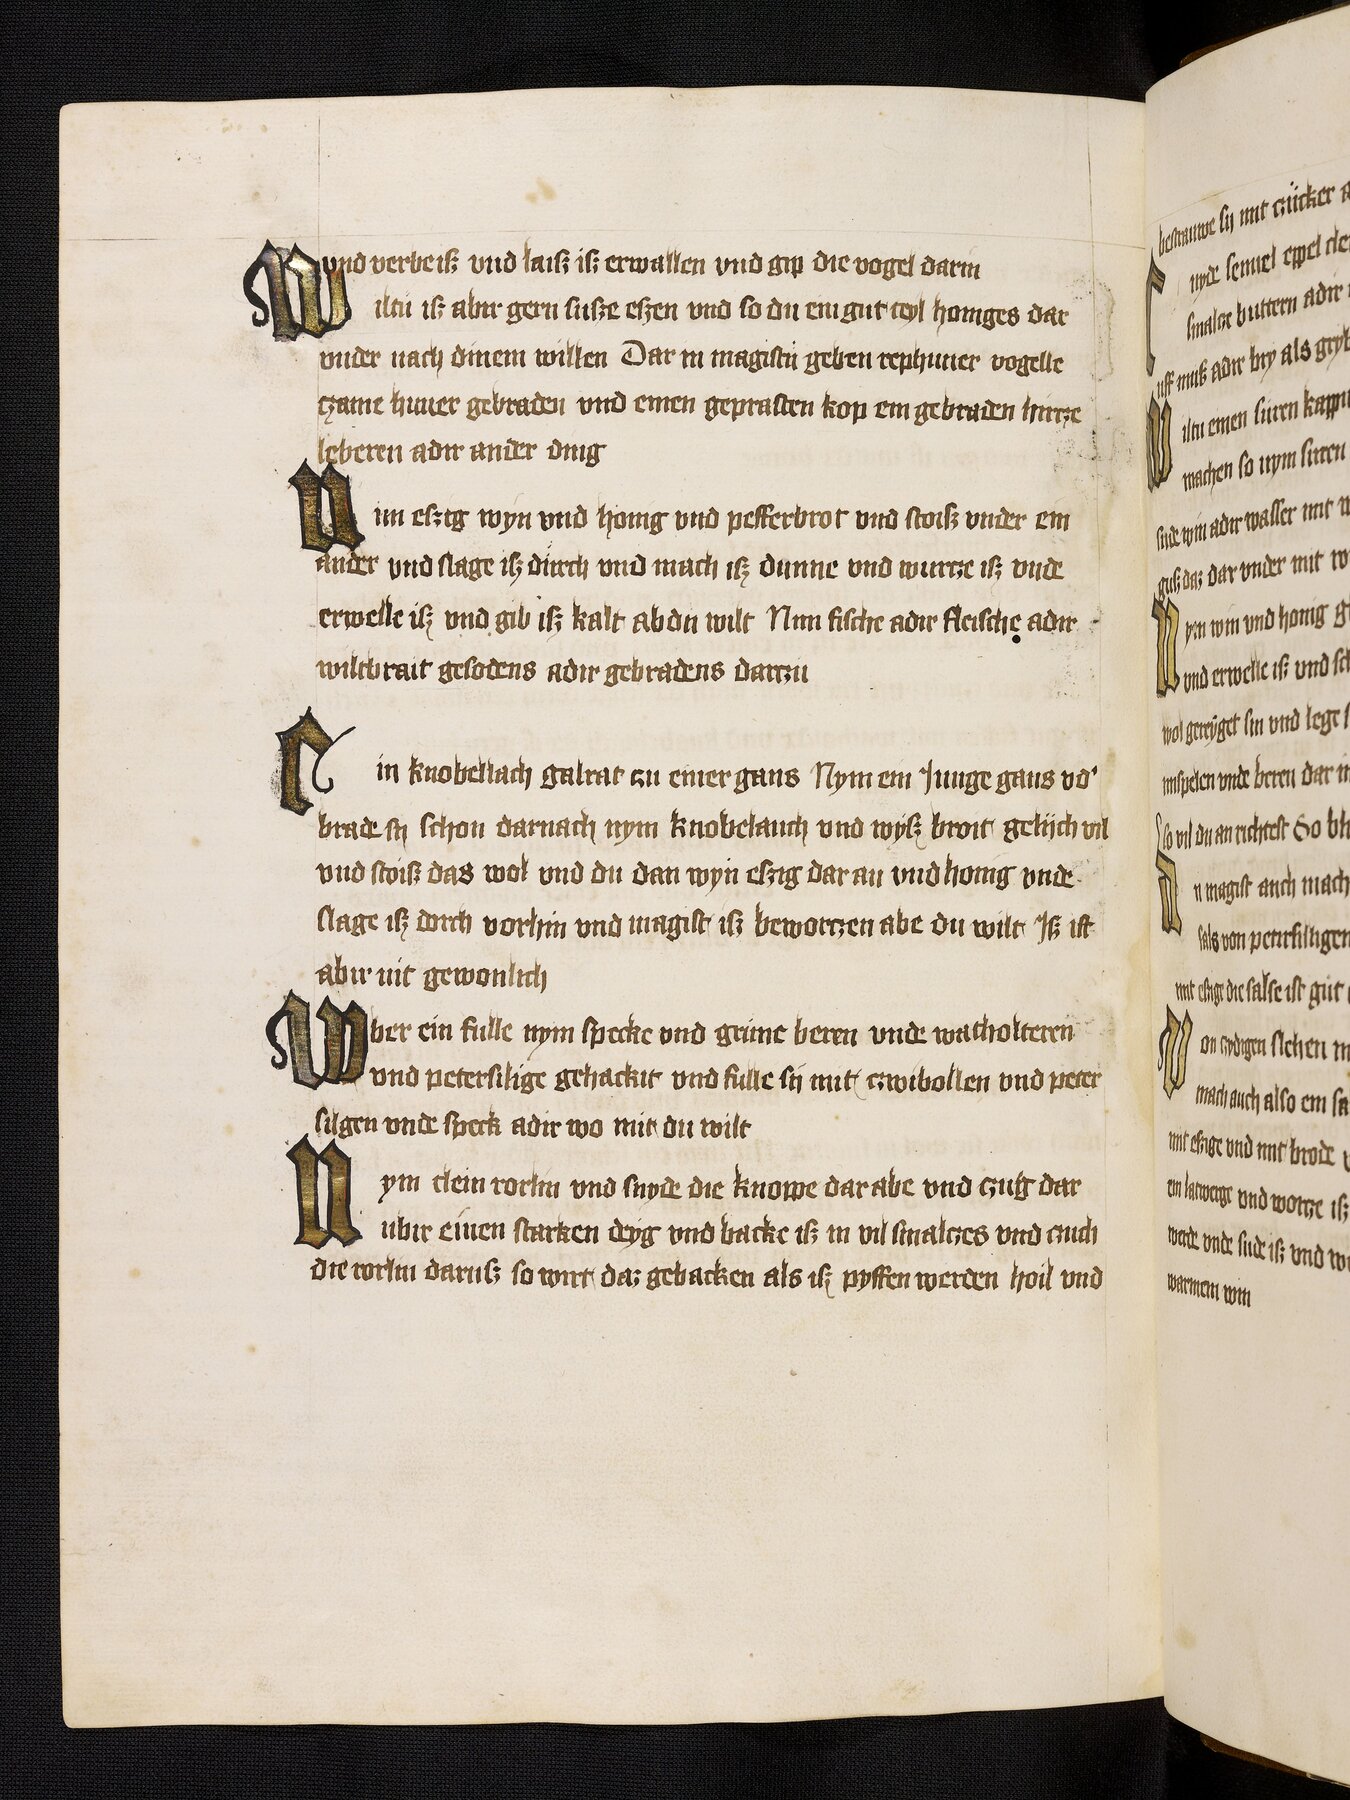 vnd verbeiß vnd laiß iß erwallen vnd gip die vogel darin
Wiltu iß abir gern suße eßen vnd so du ein gut teyl honiges dar
vnder nach dinem willen Dar in magistu geben rephuner vogelle
czame huner gebraden vnd einen geprasten kop ein gebraden hircze
leberen adir ander ding
Nim eßzig wyn vnd honig vnd pefferbrot vnd stoiß vnder ein
ander vnd slage iß durch vnd mach iß dunne vnd wurcze iß vnde
erwelle iß vnd gib iß kalt ab du wilt Nim fische adir fleische adir
wiltbrait gesodens adir gebradens darczu
Ein knobellach galrat czu einer gans Nym ein Junge gans vnd
brade sy schon darnach nym knobelauch vnd wyß broit gelijch vil
vnd stoiß das wol vnd du dan wyn eßzig dar an vnd honig vnde
slage iß dorch vorhin vnd magist iß beworczen abe du wilt Iß ist
abir nit gewonlich
Wber ein fulle nym specke vnd grune beren vnde wacholteren
vnd petersilige gehackit vnd fulle sy mit czwibollen vnd peter
silgen vnde speck adir wo mit du wilt
Nym clein rorlin vnd snyde die knoppe dar abe vnd czuß dar
ubir einen starken deyg vnd backe iß in vil smalczes vnd czuch
die rorlin daruß so wirt daz gebacken als iß pyffen werden hoil vnd
bestrauwe sy mit czucker
nyde semel eppel
smalcz buttern adir
uff muß adir bry als
Wiltu einen suren
machen so nym suren
sude win adir wasser mit
guß daz dar vnder mit
Nym win vnd honig
vnd erwelle iß vnd
wol geteyget sin vnd lege
mispelen vnde beren dar
so vil du an richtest So
Du magist auch mach
sals von petersilligen
mit eßzige die salse ist gut
Von czydigen slehen
mach auch also ein
mit eßzige vnd mit brode
ein latwerge vnd worcze iß
werde vnde sude iß vnd
warmem win